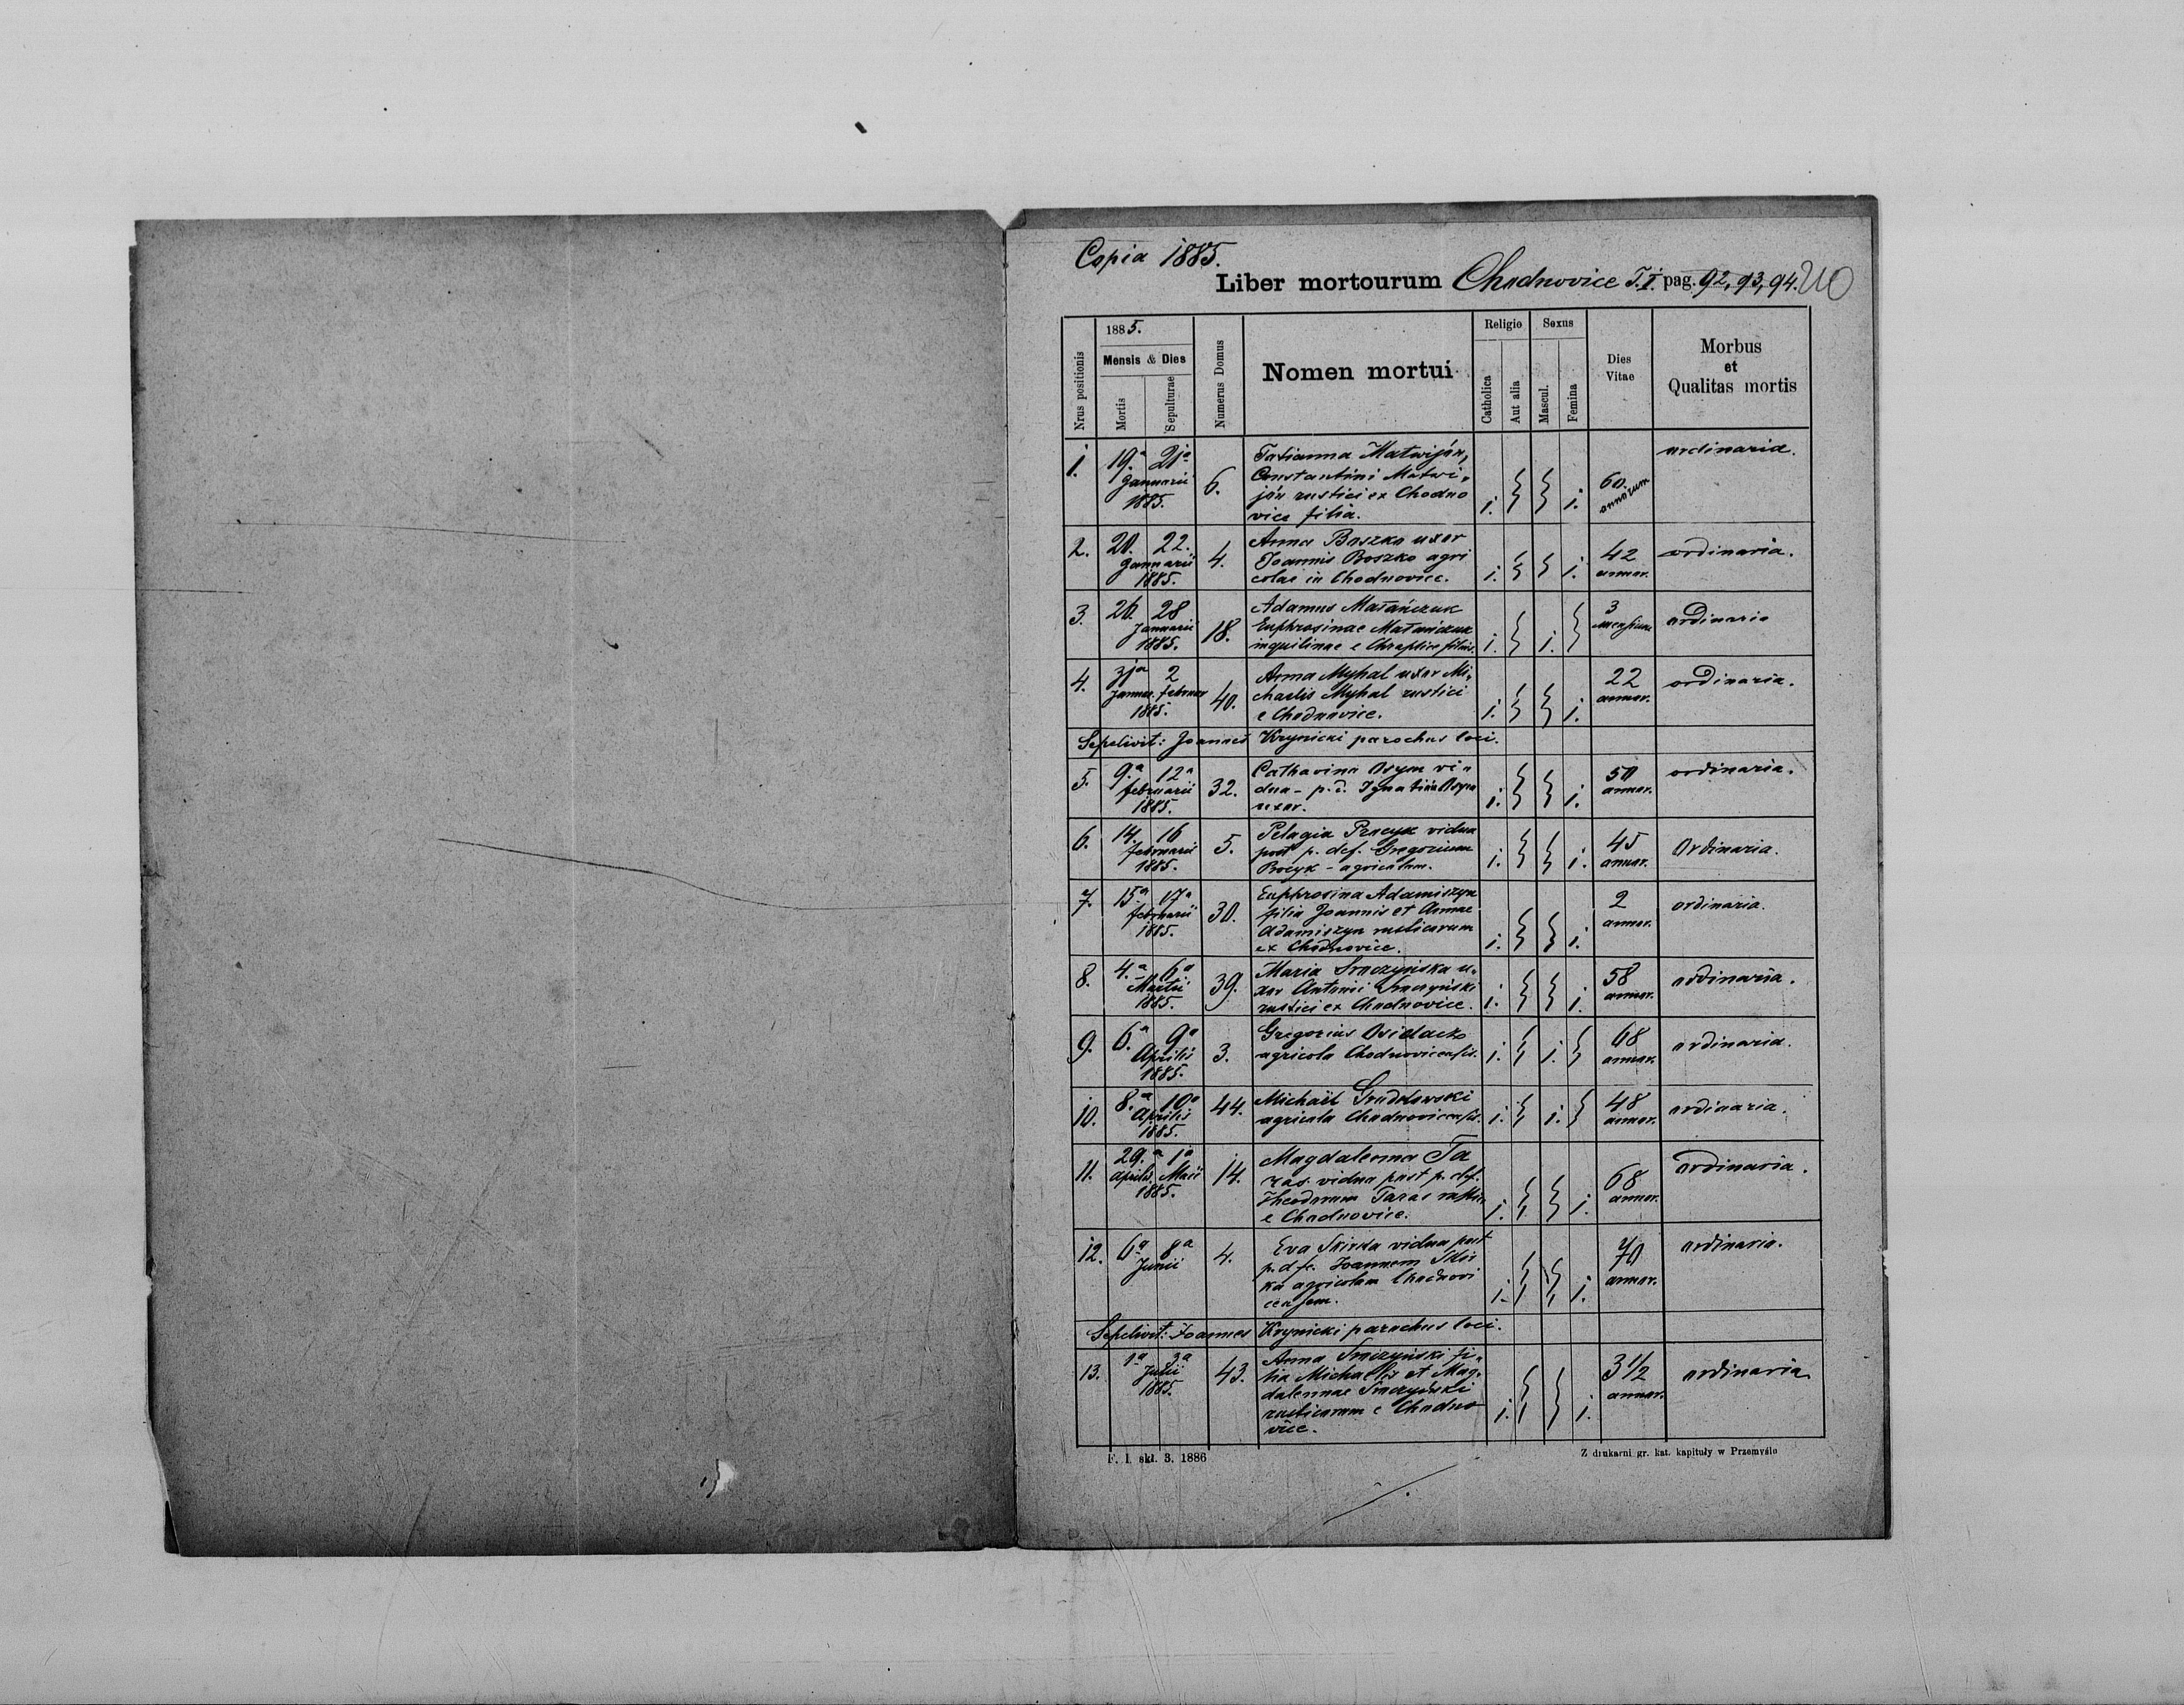 Copia 1885.
Liber mortourum Chodnovice T. I. pag. 92, 93, 94. 210
Nrus positionis
1885.
Mensis & Dies
Mortis
Sepulturae
Numerus Domus
Nomen mortui
Religio
Catholica
Aut alia
Sexus
Mascul.
Femina
Dies Vitae
Morbus
et
Qualitas mortis
1. 19.a 21a Januarii 1885. 6. i. i. 60 annorum ordinaria.
Tatianna Matwijów,
Constantini Matwi„
jów rustici ex Chodno
vice filia.
2. 20. 22. Januarii 1885. 4. i. i. 42 annor. ordinaria.
Anna Boszko uxor
Joannis Boszko agri
colae in Chodnovice.
3. 26. 28 Januarii 1885. 18. i. i. 3 mensium ordinaria
Adamus Matańczuk
Euphrosinae Matańczuk
inquilinae e
4. 31a Januar. 2 februar 1885. 40. i. i. 22 annor. ordinaria.
Anna Myhal uxor Mi„
chaelis Myhal rustici
e Chodnovice.
Sepelivit: Joannes Krynicki parochus loci.
5. 9.a 12a februarii 1885. 32. i. i. 50 annor. ordinaria.
Catharina Osym vi„
dua - p. d. Ignatii Osym
uxor.
6. 14. 16 februarii 1885. 5. i. i. 45 annor. Ordinaria.
Pelagia Procyk vidua
post p. def. Gregorium
Procyk - agricolam.
7. 15a 17a februarii 1885. 30. i. i. 2 annor. ordinaria.
Euphrosina Adamiszyn
filia Joannis et Annae
Adamiszyn rusticorum
ex Chodnovice.
8. 4.a 6a Martii 1885. 39. i. i. 58 annor. ordinaria.
Maria Smczyńska u„
xor Antonii Smczyński
rustici ex Chodnovice.
9. 6.a 9a Aprilis 1885. 3. i. i. 68 annor. ordinaria.
Gregorius Osidacz
agricola Chodnovicensis.
10. 8.a 10a Aprilis 1885. 44. i. i. 48 annor. ordinaria.
Michail
agricola Chodnovicensis.
11. 29.a Aprilis 1a Maii 1885. 14. i. i. 68 annor. ordinaria.
Magdalenna Ta
ras vidua post p. def.
Theodorum Taras rustic.
e Chodnovice.
12. 6a 8a Junii 4. i. i. 70 annor. ordinaria.
Eva Skirka vidua post
p. dfc. Joannem Skir
ka agricolam Chodnovi
censem.
Sepelivit: Joannes Krynicki parochus loci.
13. 1a 3a Julii 1885. 43. i. i. 3 1/2 annor. ordinaria
Anna Smczyński fi„
lia Michaelis et Mag„
dalennae Smczyński
rusticorum e Chodno
vice.
F. I. skł. 3. 1886
Z drukarni gr. kat. kapituły w Przemyślu